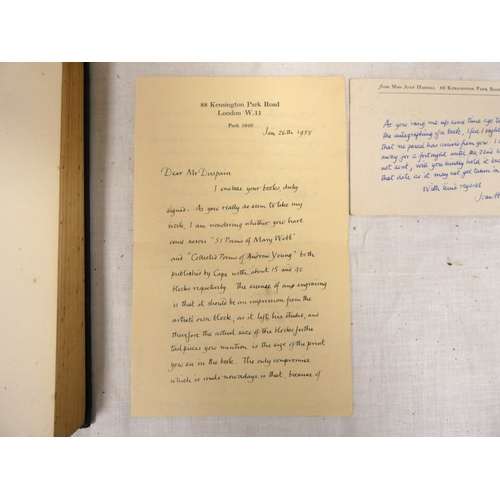 88 Kensington Park Road
London W.11
Park 5826
Jan 26th 1955
Dear Mr
I enclose your books, duly
signed. As you really do seem to like my
work, I am wondering whether you have
come across "51 Poems of Mary Webb"
and "Collected Poems of Andrew Young" both
published by Cape with about 15 and 40
blocks respectively. The essence of any engraving
is that it should be an impression from the
artist's own block, as it left his studio, and
therefore the actual size of the blocks for the
tailpieces you mention is the size of the print
you see in the book. The only compromise
which is made nowadays is that, because of
from Miss Joan Hassall 88 Kensington Park Road
As you rang me up some time ago
the autographing of a book, I feel I ought
that no parcel has arrived from you. I
away for a fortnight until the 22nd
not sent, will you kindly hold it
that date as it may not get taken in
With kind regards
Joan H